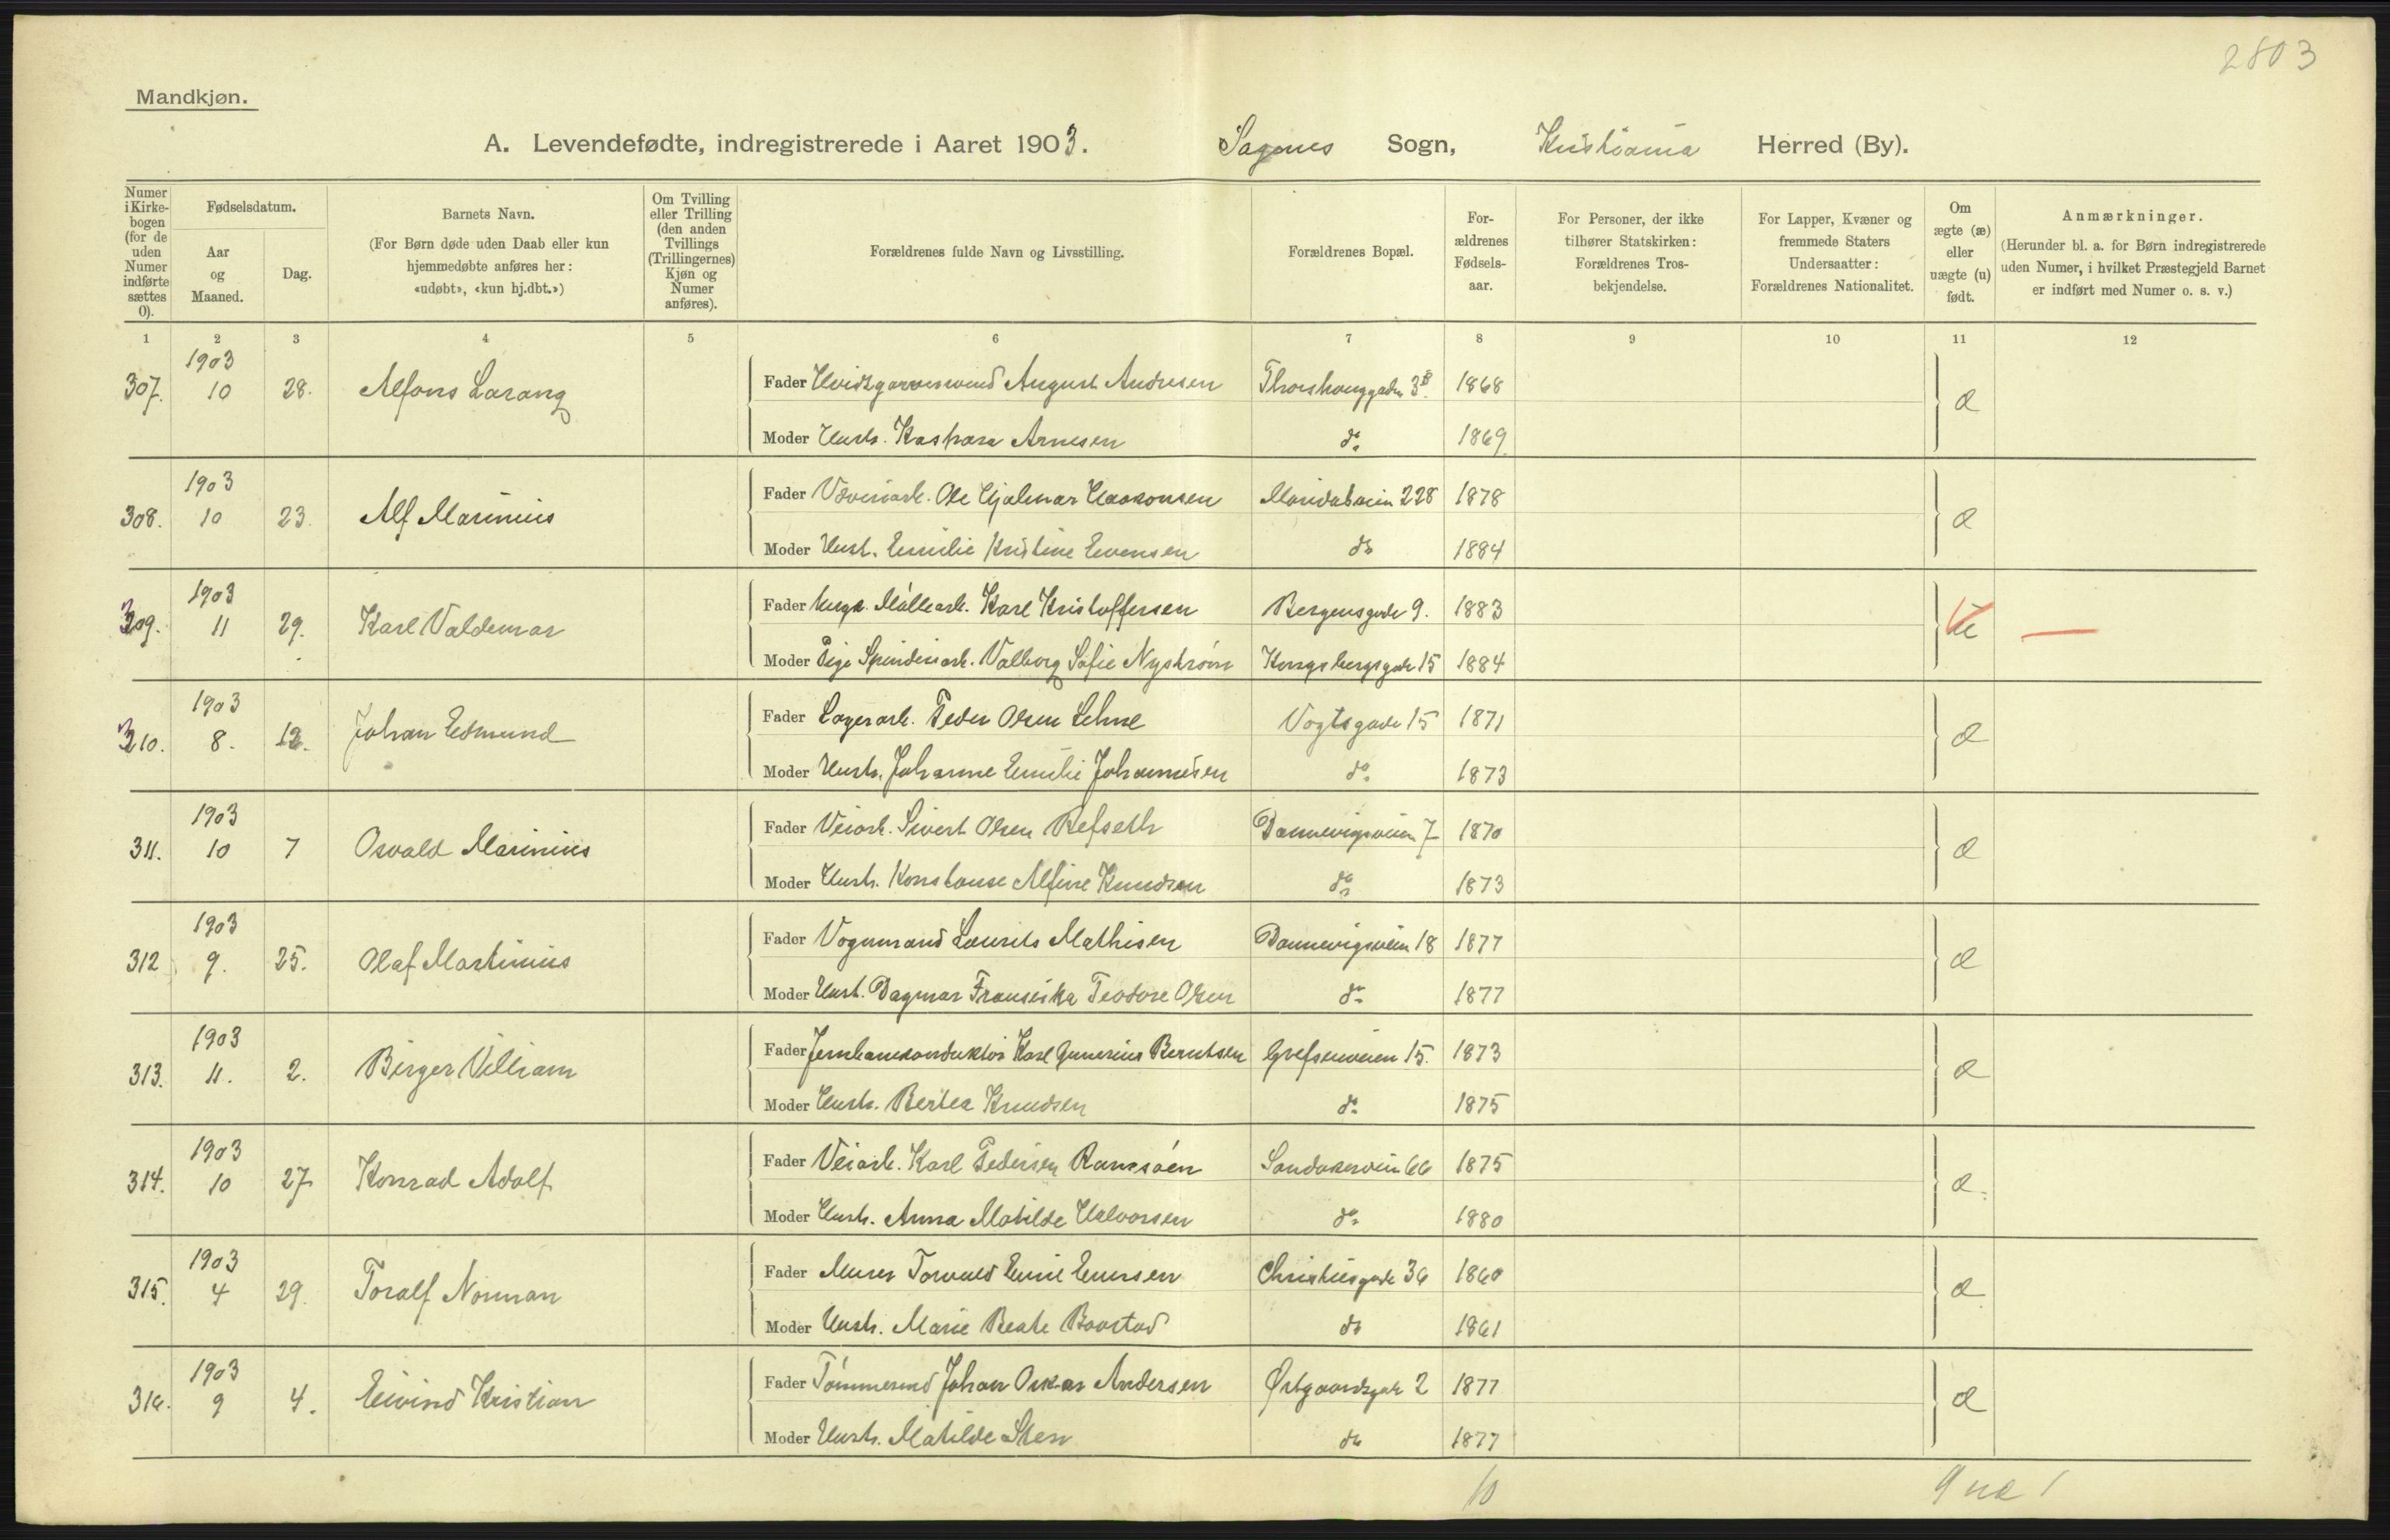 2803
Mandkjøn.
A. Levendefødte, indregistrerede i Aaret 1903. Sagenes Sogn, Kristiania Herred (By).
Numer i Kirkebogen (for de uden Numer indførte sættes 0).
Fødselsdatum.
Aar og Maaned.
Dag.
Barnets Navn.
(For Børn døde uden Daab eller kun hjemmedøbte anføres her: «udøbt», «kun hj.dbt.»)
Om Tvilling eller Trilling (den anden Tvillings (Trillingernes) Kjøn og Numer anføres).
Forældrenes fulde Navn og Livsstilling.
Forældrenes Bopæl.
Forældrenes Fødselsaar.
For Personer, der ikke tilhører Statskirken: Forældrenes Trosbekjendelse.
For Lapper, Kvæner og fremmede Staters Undersaatter: Forældrenes Nationalitet.
Om ægte (æ) eller uægte (u) født.
Anmærkninger.
(Herunder bl. a. for Børn indregistrerede uden Numer, i hvilket Præstegjeld Barnet er indført med Numer o. s. v.)
1 2 3 4 5 6 7 8 9 10 11 12
1903
307. 10 28. Alfons Larang Fader August Andresen 1868 æ
Moder Hustr. Arnesen do 1869
1903
308. 10 23. Alf Marinius Fader Væveriarb. Ole Hjalmar Haakonsen Maridalsveien 228 1878 æ
Moder Hust. Emilie Kristine Evensen do 1884
1903
309. 11 29. Karl Valdemar Fader Ungk. Møllearb. Karl Kristoffersen Bergensgade 9. 1883 u
Moder Pige Spinderiarb. Valborg Sofie Nystrøm Kongsbergsgade 15 1884
1903
310. 8. 12. Johan Edmund Fader Lagerarb. Peder Olsen Lehne Vogtsgade 15 1871 æ
Moder Hustr. Johanne Emilie Johannesen do 1873
1903
311. 10 7 Osvald Marinius Fader Veiarb. Sivert Olsen Refseth Dannevigsveien 7 1870 æ
Moder Hustr. Konstanse Alfine Knudsen do 1873
1903
312 9. 25. Olaf Martinius Fader Vognmand Laurits Mathisen Dannevigsveien 18 1877 æ
Moder Hust. Dagmar Fransiska Teodore Olsen do 1877
1903
313. 11. 2. Birger Villiam Fader Jernbanekonduktør Karl Gunerius Berntsen Grefsenveien 15. 1873 æ
Moder Hustr. Bertea Knudsen do 1875
1903
314. 10 27 Konrad Adolf Fader Veiarb. Karl Pedersen Ramsøen Sandakerveien 66 1875 æ
Moder Hustr. Anna Matilde Halvorsen do 1880
1903
315. 4 29. Toralf Norman Fader Murer Torvald Emil Emersen Christiesgade 36 1860 æ
Moder Hustr. Marie Beate Baastad do 1861
1903
316. 9 4. Eivind Kristian Fader Tømmermd Johan Oskar Andersen Østgaardsgade 2 1877 æ
Moder Hustr. Matilde Sten do 1877
10 9 uæ 1